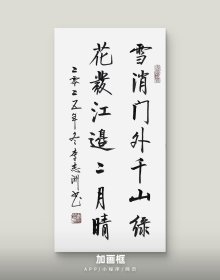 雪消门外千山绿
花发江边二月晴
二零二五年冬李志渊书
加画框
APP/小程序/网页